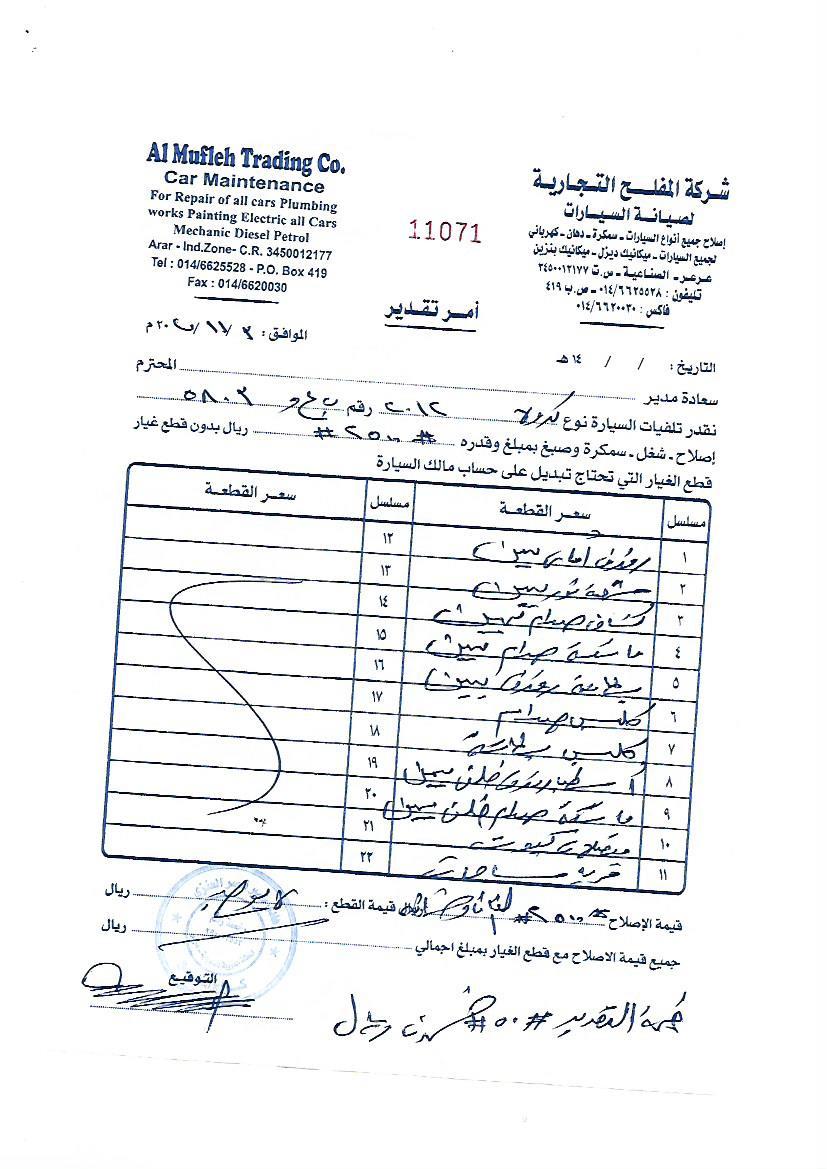 Al Mufleh Trading Co.
Car Maintenance
For Repair of all cars Plumbing
works Painting Electric all Cars
Mechanic Diesel Petrol
Arar - Ind.Zone- C.R. 3450012177
Tel : 014/6625528 - P.O. Box 419
Fax : 014/6620030
11071
شركة المفلح التجارية
لصيانة السيارات
إصلاح جميع أنواع السيارات ـ سمكرة ـ دهان ـ كهربائي
لجميع السيارات ـ ميكانيك ديزل ـ ميكانيك بنزين
عرعر ـ الصناعية ـ س.ت ٣٤٥٠٠١٢١٧٧
تليفون : ٠١٤/٦٦٢٥٥٢٨ ـ ص.ب ٤١٩
فاكس : ٠١٤/٦٦٢٠٠٣٠
أمر تقدير
التاريخ : / / ١٤ هـ
الموافق : ٣ / ١١ / ٢٠ م
سعادة مدير المحترم
نقدر تلفيات السيارة نوع كرولا ٢٠١٢ رقم ٥٨٠٣
إصلاح ـ شغل ـ سمكرة وصبغ بمبلغ وقدره # ٢٥٠٠ # ريال بدون قطع غيار
قطع الغيار التي تحتاج تبديل على حساب مالك السيارة
مسلسل سعـر القطعـة مسلسل سعـر القطعـة
١ رفرف امامي يمين ١٢
٢ شمعة نور يمين ١٣
٣ كشاف صدام يمين ١٤
٤ ماسكة صدام يمين ١٥
٥ بطانة رفرف يمين ١٦
٦ كلبس صدام ١٧
٧ كلبس بطانة ١٨
٨ خلفي يمين ١٩
٩ ماسكة صدام خلفي يمين ٢٠
١٠ مفصلات كبوت ٢١
١١ قربة مساحات ٢٢
قيمة الإصلاح # ٢٥٠٠ # قيمة القطع : لا يوجد ريال
جميع قيمة الاصلاح مع قطع الغيار بمبلغ اجمالي ريال
التوقيع
قيمة التقدير # ٥٠ # خمسون ريال